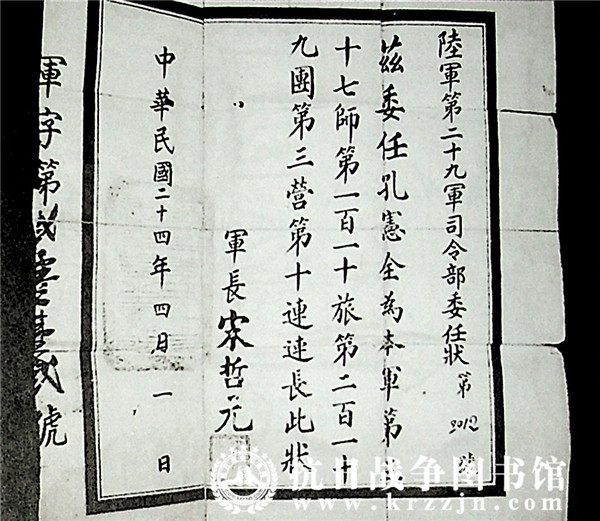 陸軍第二十九軍司令部委任狀 第 2012 號
茲委任孔憲全為本軍第
十七師第一百一十旅第二百一十
九團第三營第十連連長此狀
軍長宋哲元
中華民國二十四年四月一日
軍字第貳零壹貳號
抗日战争图书馆
www.krzzjn.com